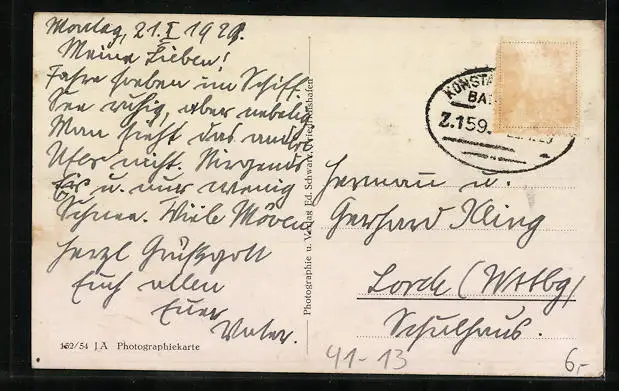 Montag, 21. I 1929.
Meine Lieben!
Fahre soeben im Schiff.
See ruhig, aber neblig
Man sieht das andre
Ufer nicht. Nirgends
Eis u. nur wenig
Schnee. Viele Möven
Herzl Grüßgott
Euch allen
Euer
Vater.
152/54 J A Photographiekarte
Photographie u. Verlag Ed. Schwarz, Friedrichshafen
KONSTA
BA
Z.159.
Herman u.
Gerhard Kling
Lorch (Wttbg)
Schulhaus.
41-13
6,-